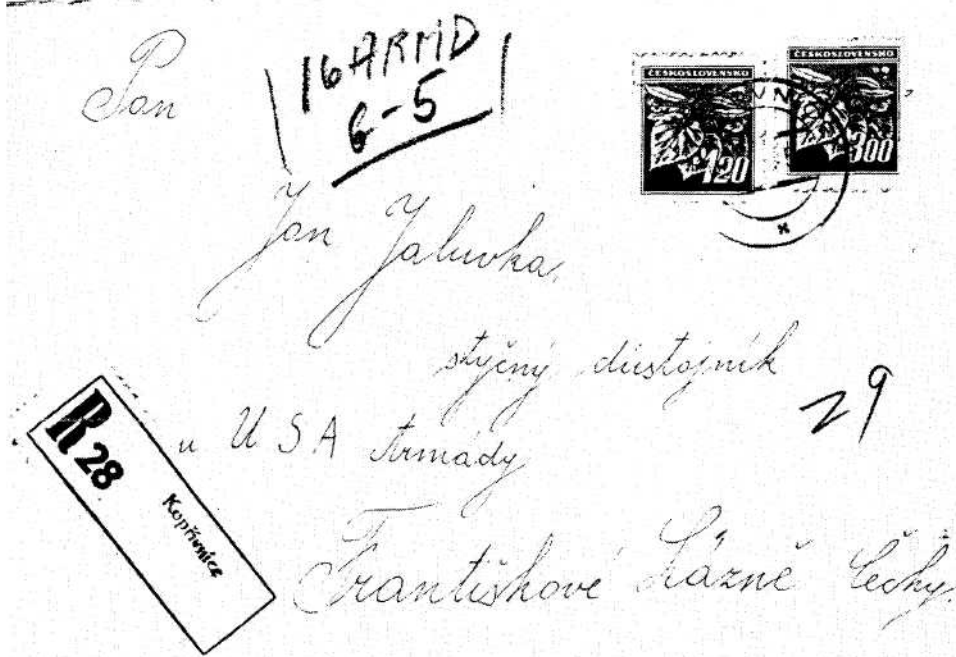 Pan
16 ARMD
6-5
ČESKOSLOVENSKO
120
ČESKOSLOVENSKO
300
Jan Jaluvka,
styčný důstojník
29
u USA Armády
R 28
Kopřivnice
Františkové Lázně Čechy.